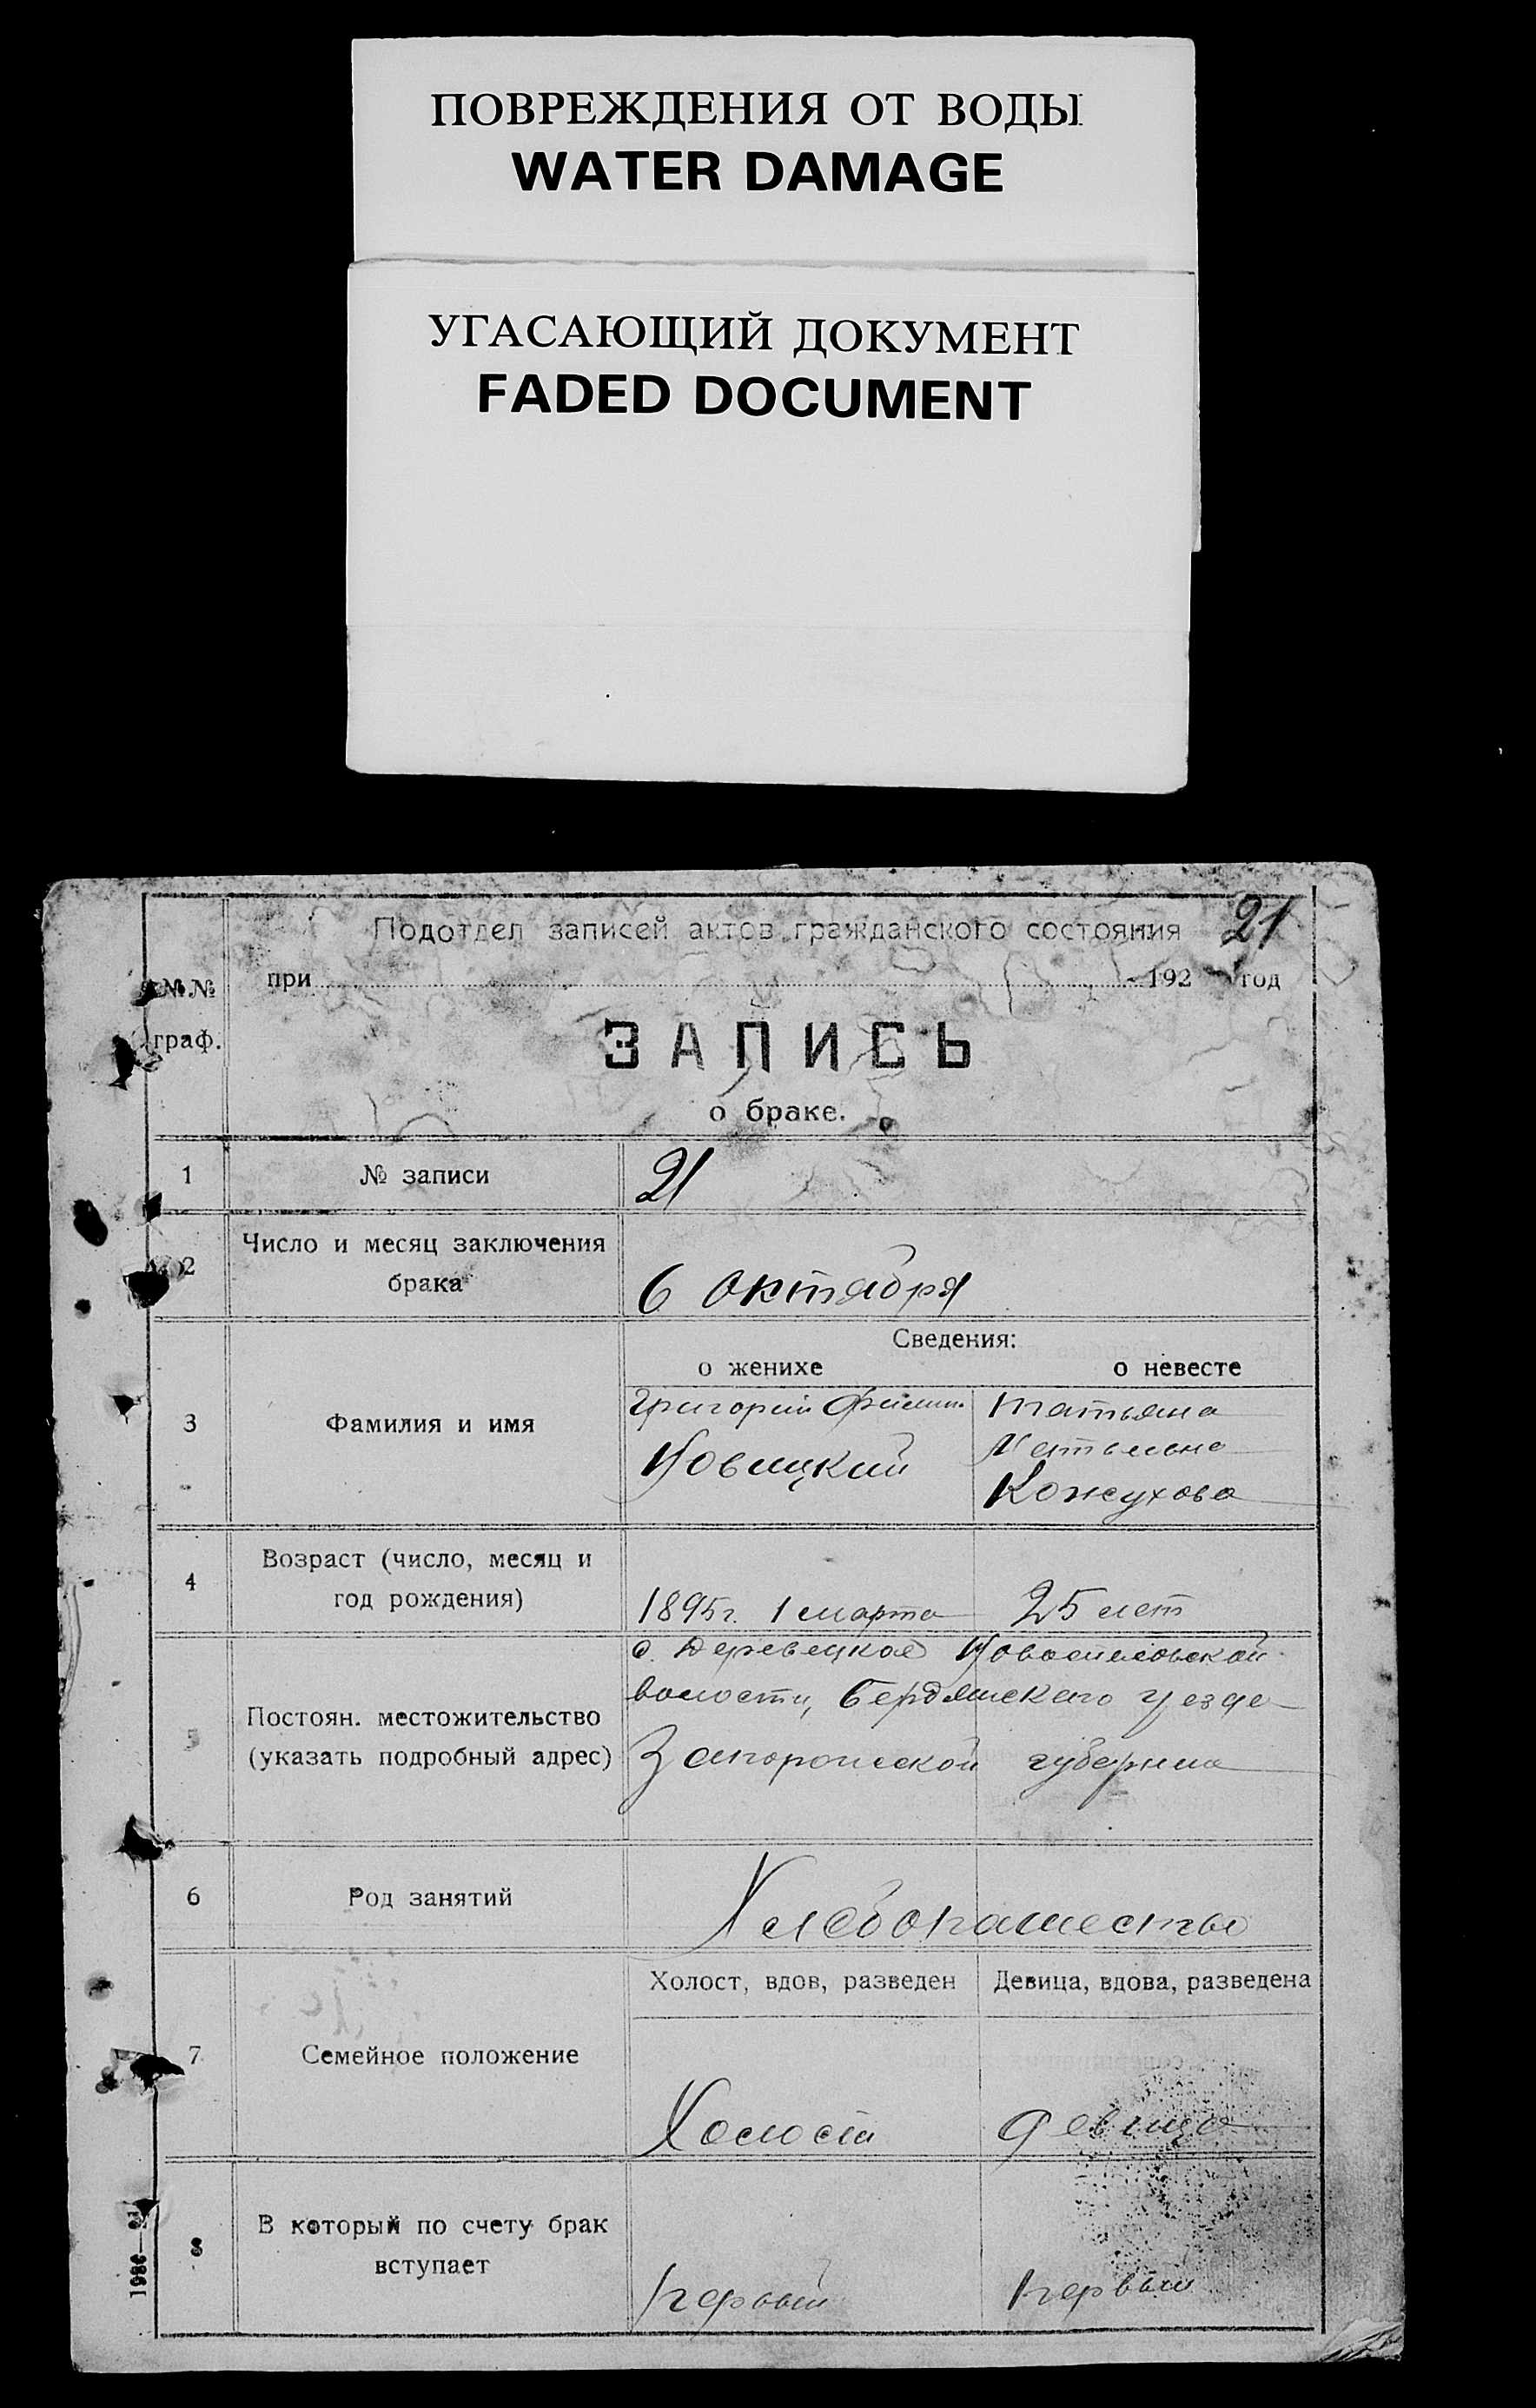 ПОВРЕЖДЕНИЯ ОТ ВОДЫ
WATER DAMAGE
УГАСАЮЩИЙ ДОКУМЕНТ
FADED DOCUMENT
Подотдел записей актов гражданского состояния 21
№№ при 192 год
граф.
ЗАПИСЬ
о браке.
1 № записи 21
2 Число и месяц заключения
брака 6 октября
Сведения:
о женихе о невесте
3 Фамилия и имя
Григорий Татьяна
Новицкий
Кожухова
4 Возраст (число, месяц и
год рождения)
1895г. 1 марта 25 лет
с. Новоспасовской
волости, Бердянского уезда
5 Постоян. местожительство
(указать подробный адрес) Запорожской губернии
6 Род занятий Хлебопашество
Холост, вдов, разведен Девица, вдова, разведена
7 Семейное положение
Холост девица
8 В который по счету брак
вступает
первый первый